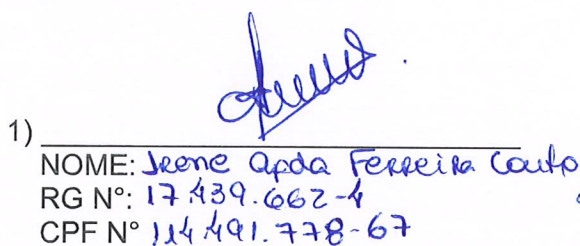 1)
NOME: Irene Apda Ferreira Couto
RG N°: 17.439.662-4
CPF N° 114.491.778-67